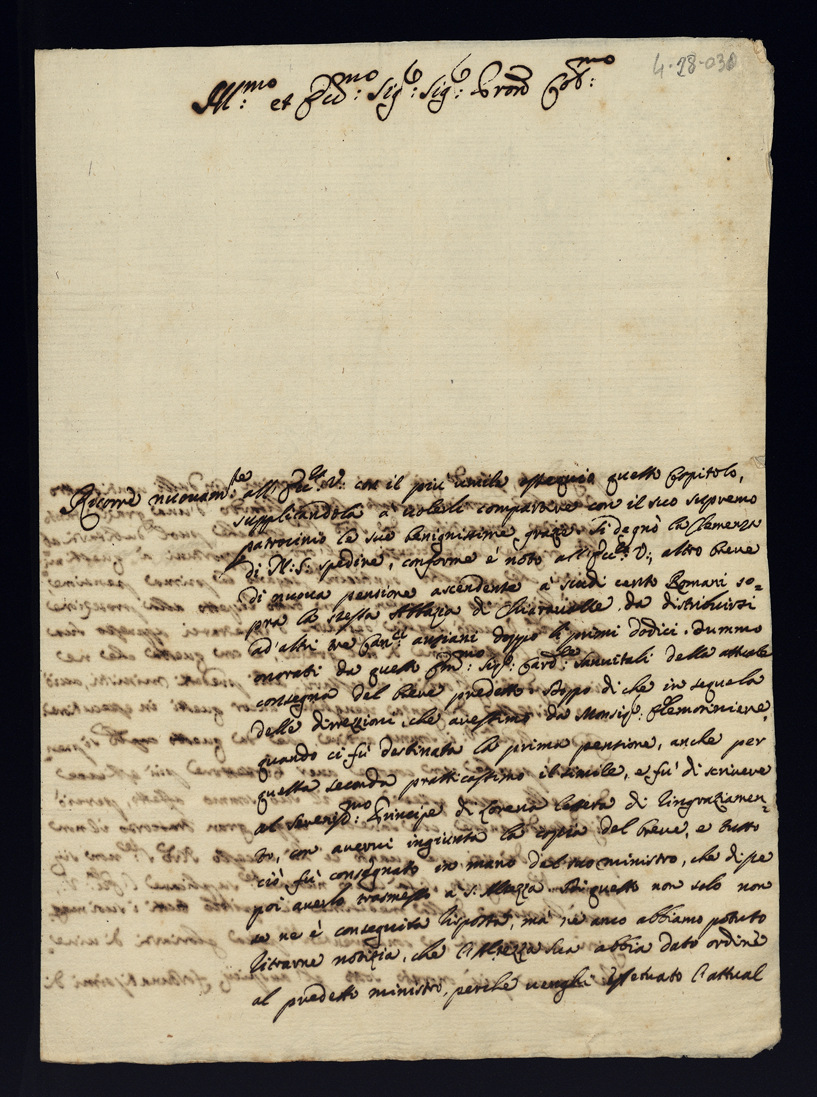 4-28-030
Ill:mo et Ecc:mo Sig:r Sig:r Pron Col:mo
Ricorre nuouam:te all'Ecc:za V: con il più umile ossequio questo Capitolo,
supplicandola à uolerli compartire con il suo supremo
patrocinio le sue benignissime grazie. Si degnò la Clemenza
di N: S: spedire, conforme è noto all'Ecc:za V:, altro breue
di nuoua pensione ascendente à scudi cento Romani so=
pra la stessa Abbazia di Chiaraualle da distribuirsi
ad altri tre Can:ci anziani doppo li primi dodici. Summo
onorati da questo Em:mo Sig:r Card:le Sanuitali della attuale
consegna del breue predetto. Doppo di che in sequela
delle direzzioni, che auessimo da Monsig:
quando ci fù destinata la prima pensione, anche per
questa seconda pratticassimo il simile, e fù di scriuere
al Sereniss:mo Principe di Lorena lettera di ringraziamen=
to, con auerui ingiunta la copia del breue, e tutto
ciò fù consegnato in mano del suo ministro, che disse
poi auerlo trasmesso à S: Altezza. Di questo non solo non
se ne è conseguita risposta, mà nè anco abbiamo potuto
ritrarne notizia, che l'Altezza Sua abbia dato ordine
al predetto ministro, perche uenghi effetuato l'attual